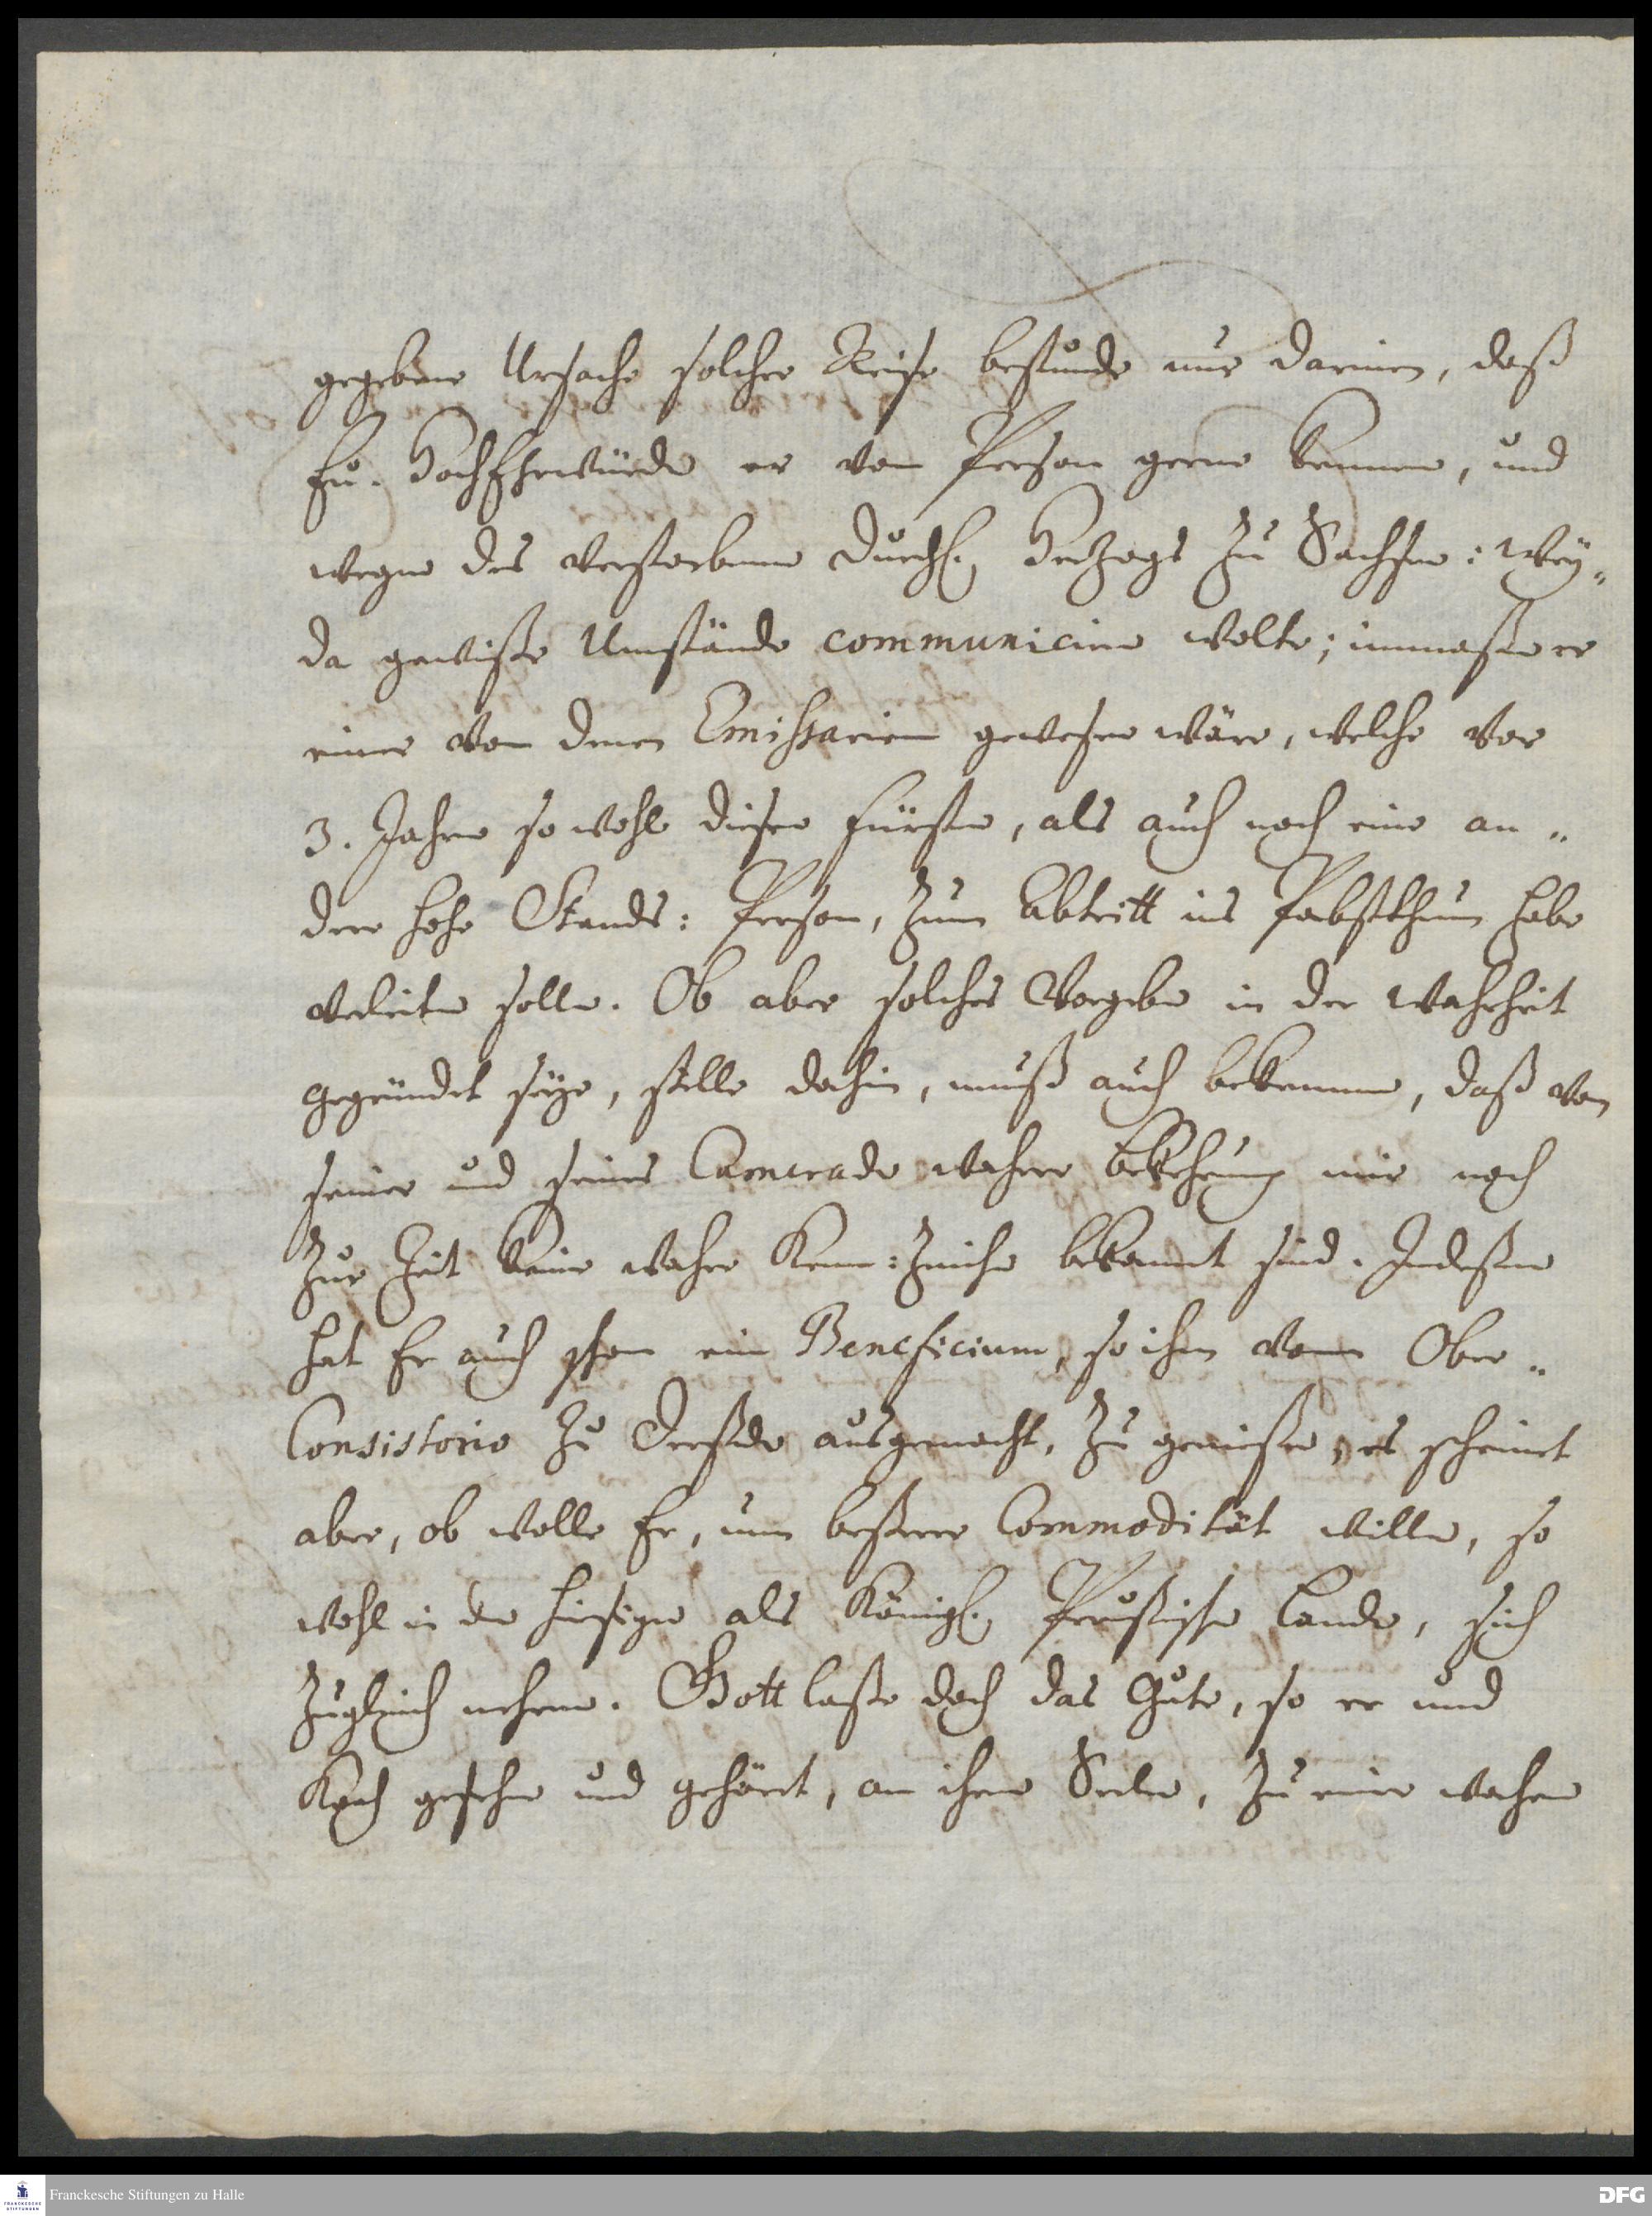 gegebene Ursache solcher Reise bestunde nur darinnen, daß
Eu. HochEhrwürde er von Person gerne kennen, und
wegen des verstorbenen Durchl. Hertzogs zu Sachsen: Wey„
da gewiße Umstände communiciren wolte; immaßen er
einer von denen Emissarien gewesen wäre, welche vor
3. Jahren so wohl diesen Fürsten, als auch noch eine an„
dere hohe Stands: Person, zum Abtritt ins Pabstthum habe
verleiten sollen. Ob aber solches Vorgeben in der Wahrheit
gegründet seye, stelle dahin, muß auch bekennen, daß von
seiner und seines Camerade wahrer bekehrung mir noch
zur Zeit keine wahre Kenn:Zeichen bekannt sind. Indeßen
hat Er auch schon ein Beneficium, so ihm vom Ober„
Consistorio zu Dreßden ausgemacht, zu genießen; es scheinet
aber, ob wolle Er, um beßerer Commodität willen, so
wohl in den hiesigen als Königl. Preußische Lande, sich
zugleich nehren. Gott laße doch das Gute, so er und
Koch gesehen und gehöret, an ihren Seelen, zu einer wahren
Franckesche Stiftungen zu Halle
FRANCKESCHE
STIFTUNGEN
DFG